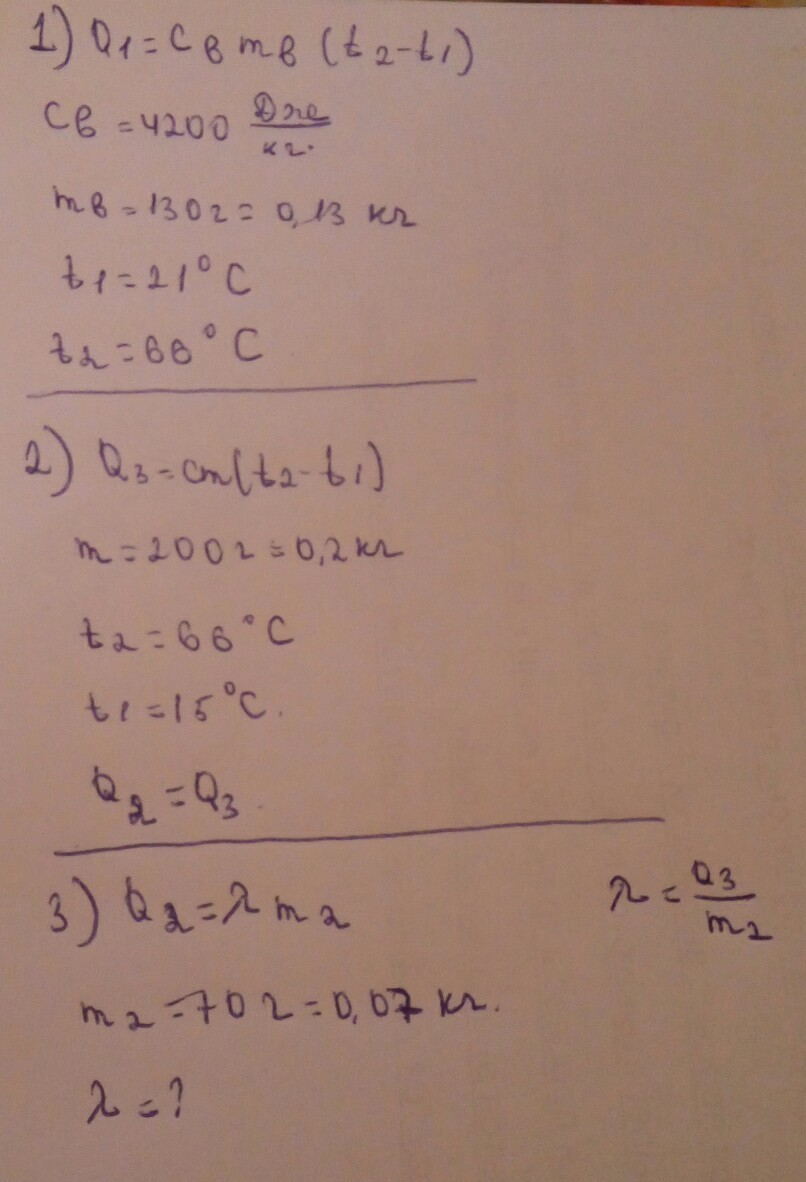 1) Q1 = Cв mв (t2-t1)
Cв = 4200 Дже/кг.
mв = 130г = 0,13 кг
t1 = 21°C
t2 = 66°C
2) Q3 = cm(t2-t1)
m = 200г = 0,2кг
t2 = 66°C
t1 = 15°C.
Q2 = Q3
3) Q2 = λ m2
λ = Q3/m2
m2 = 70г = 0,07 кг.
λ = ?